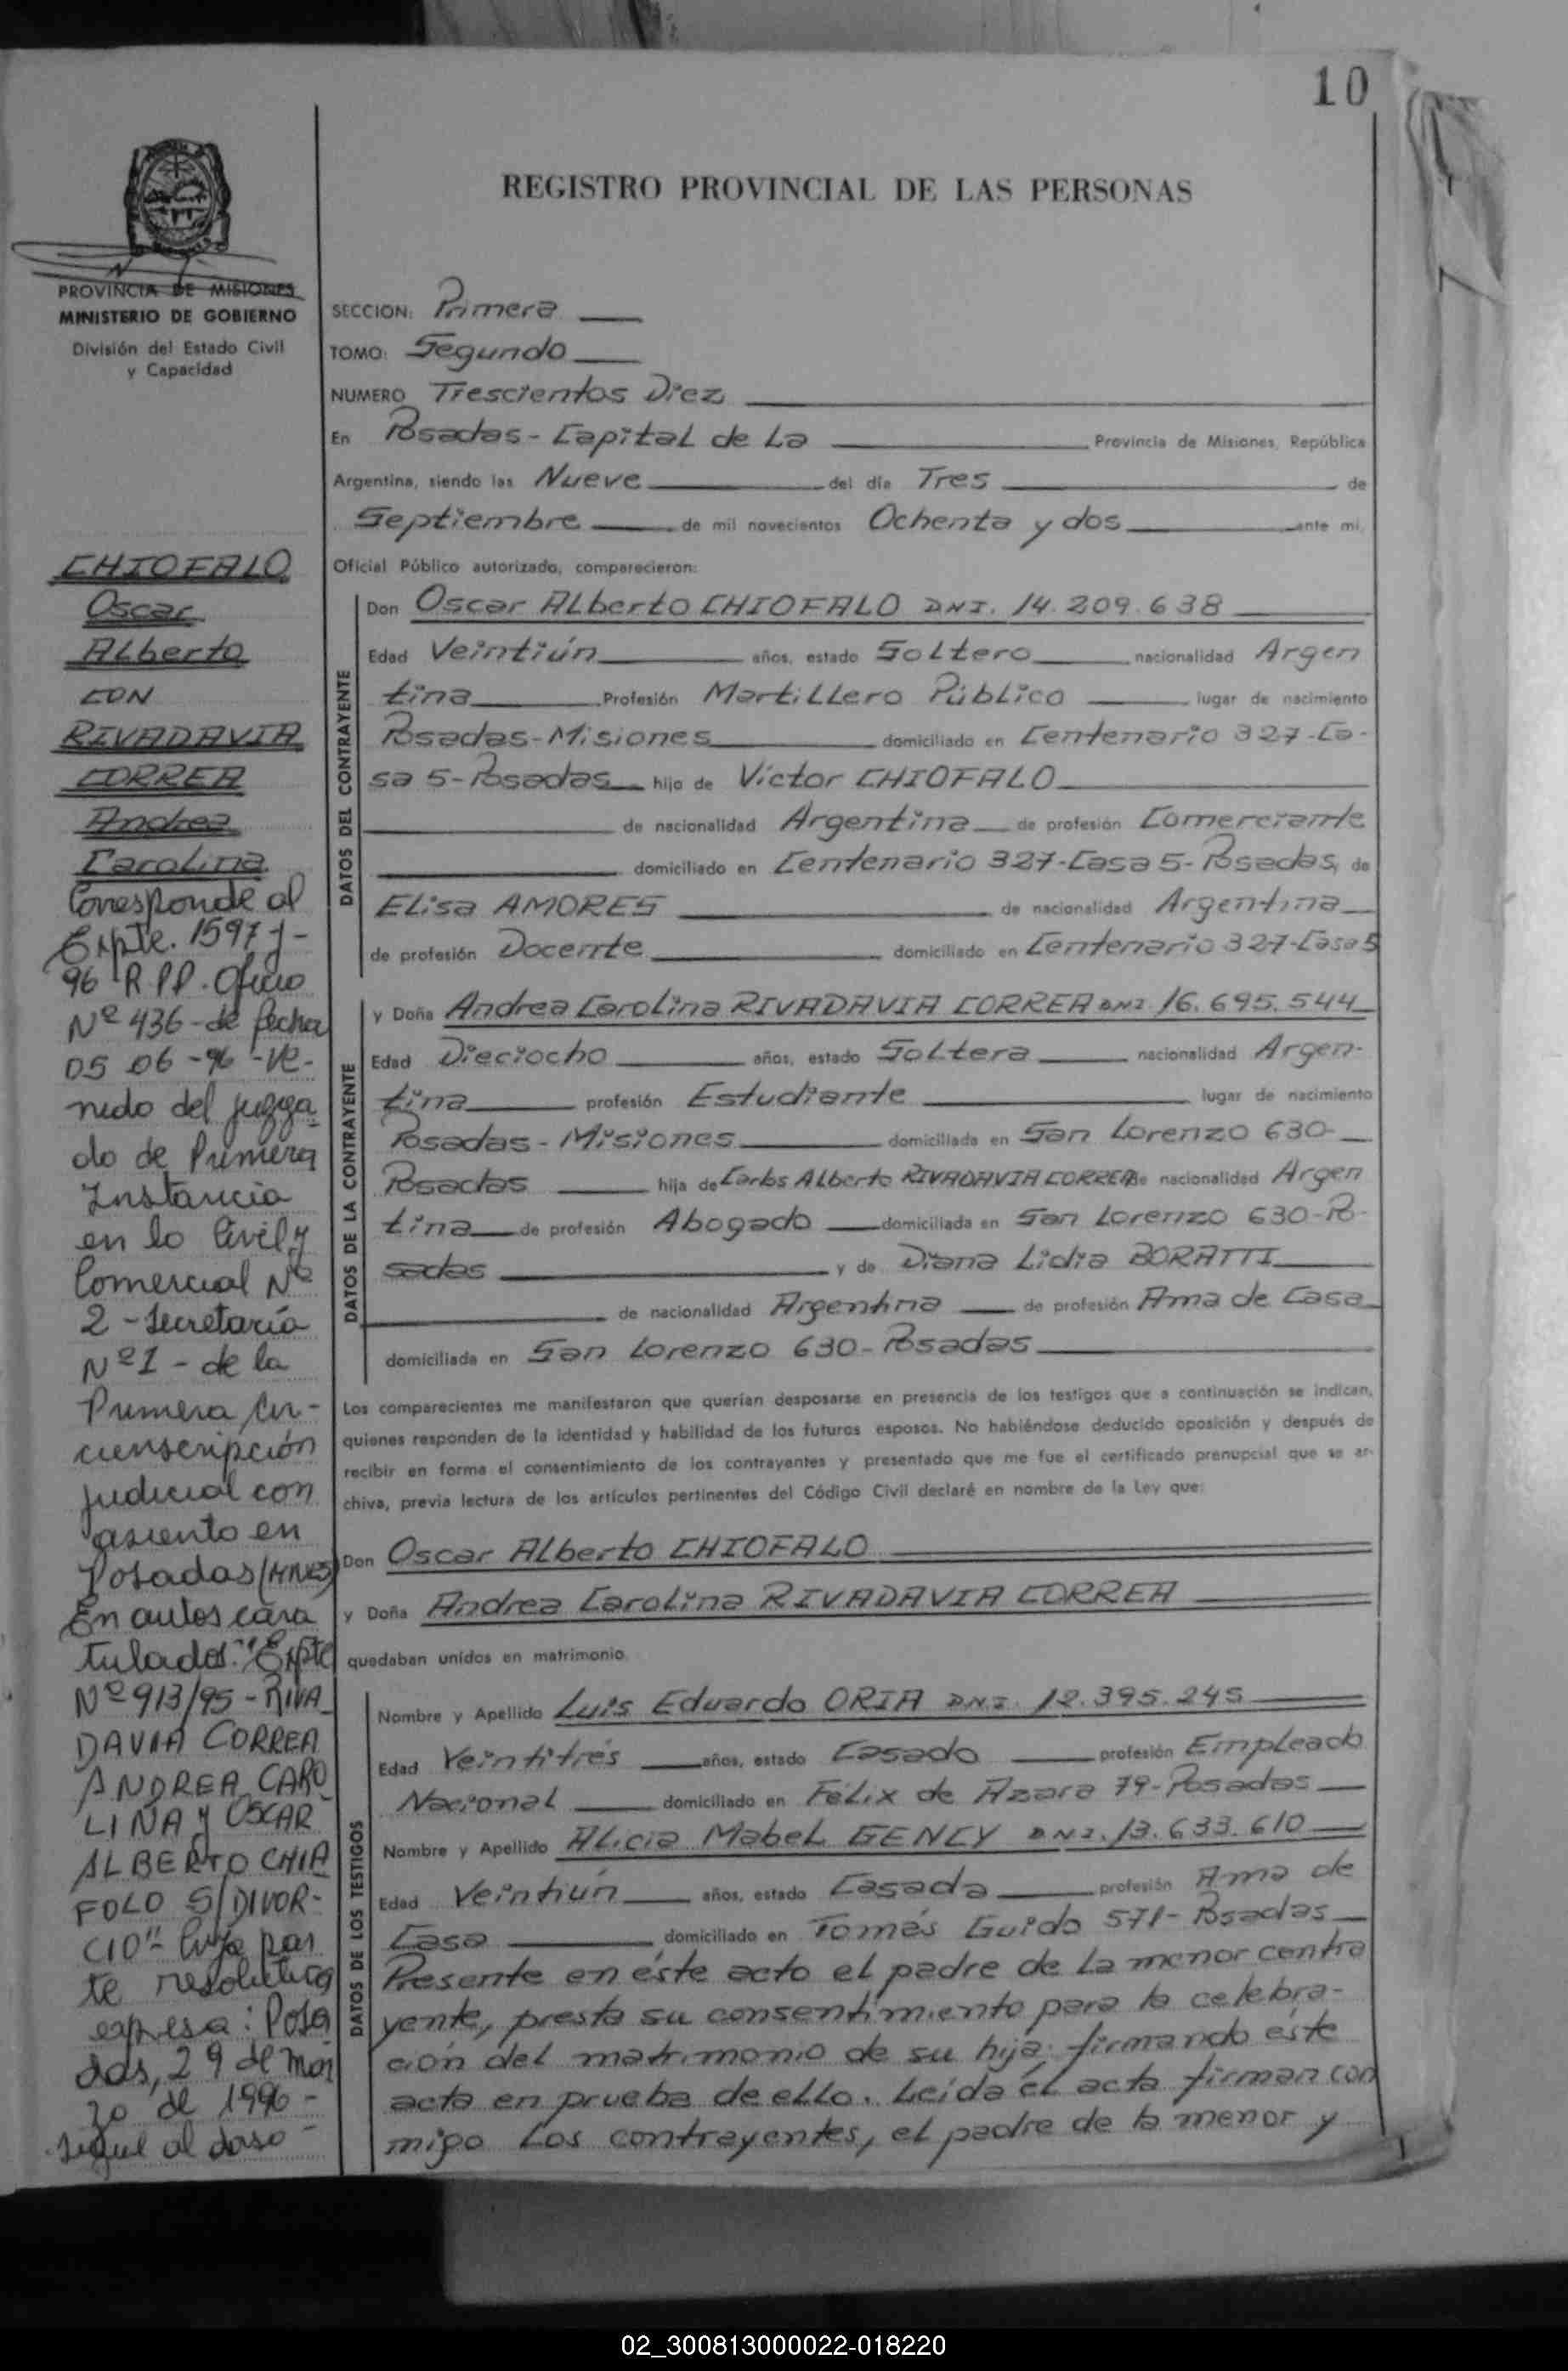 10
REGISTRO PROVINCIAL DE LAS PERSONAS
PROVINCIA DE MISIONES
MINISTERIO DE GOBIERNO
División del Estado Civil
y Capacidad
SECCION: Primera
TOMO: Segundo
NUMERO Trescientos Diez
En Posadas - Capital de La Provincia de Misiones, República
Argentina, siendo las Nueve del día Tres de
Septiembre de mil novecientos Ochenta y dos ante mi,
Oficial Público autorizado, comparecieron:
CHIOFALO
Oscar
Alberto
CON
RIVADAVIA
CORREA
Andrea
Carolina
Corresponde al
Expte. 1597 J-
96 R.P.P. Oficio
Nº 436 - de fecha
05 06 - 96 - ve-
nido del juzga
do de Primera
Instancia
en lo Civil y
Comercial Nº
2 - Secretaría
Nº 1 - de la
Primera Cir-
cunscripción
judicial con
asiento en
Posadas (MNES)
En autos cara
tulados: "Expte
Nº 913/95 - RIVA
DAVIA CORREA
ANDREA CARO
LINA y OSCAR
ALBERTO CHIA
FOLO S/DIVOR-
CIO" Cuya par
te resolutiva
expresa: Posa
das, 29 de mar
zo de 1996 -
Sigue al dorso -
DATOS DEL CONTRAYENTE
Don Oscar Alberto CHIOFALO DNI. 14.209.638
Edad Veintiún años, estado Soltero nacionalidad Argen
tina Profesión Martillero Público lugar de nacimiento
Posadas - Misiones domiciliado en Centenario 327 - Ca-
sa 5 - Posadas hijo de Víctor CHIOFALO
de nacionalidad Argentina de profesión Comerciante
domiciliado en Centenario 327 - Casa 5 - Posadas, de
Elisa AMORES de nacionalidad Argentina
de profesión Docente domiciliado en Centenario 327 - Casa 5
DATOS DE LA CONTRAYENTE
y Doña Andrea Carolina RIVADAVIA CORREA DNI. 16.695.544
Edad Dieciocho años, estado Soltera nacionalidad Argen-
tina profesión Estudiante lugar de nacimiento
Posadas - Misiones domiciliada en San Lorenzo 630 -
Posadas hija de Carlos Alberto RIVADAVIA CORREA de nacionalidad Argen
tina de profesión Abogado domiciliada en San Lorenzo 630 - Po-
sadas y de Diana Lidia BORATTI
de nacionalidad Argentina de profesión Ama de Casa
domiciliada en San Lorenzo 630 - Posadas
Los comparecientes me manifestaron que querían desposarse en presencia de los testigos que a continuación se indican,
quienes responden de la identidad y habilidad de los futuros esposos. No habiéndose deducido oposición y después de
recibir en forma el consentimiento de los contrayentes y presentado que me fue el certificado prenupcial que se ar-
chiva, previa lectura de los artículos pertinentes del Código Civil declaré en nombre de la Ley que:
Don Oscar Alberto CHIOFALO
y Doña Andrea Carolina RIVADAVIA CORREA
quedaban unidos en matrimonio.
DATOS DE LOS TESTIGOS
Nombre y Apellido Luis Eduardo ORIA DNI. 12.395.245
Edad Veintitrés años, estado Casado profesión Empleado
Nacional domiciliado en Félix de Azara 79 - Posadas
Nombre y Apellido Alicia Mabel GENCY DNI. 13.633.610
Edad Veintiún años, estado Casada profesión Ama de
Casa domiciliado en Tomás Guido 571 - Posadas
Presente en éste acto el padre de la menor contra
yente, presta su consentimiento para la celebra-
ción del matrimonio de su hija; firmando éste
acta en prueba de ello. Leída el acta firman con
migo los contrayentes, el padre de la menor y
02_300813000022-018220